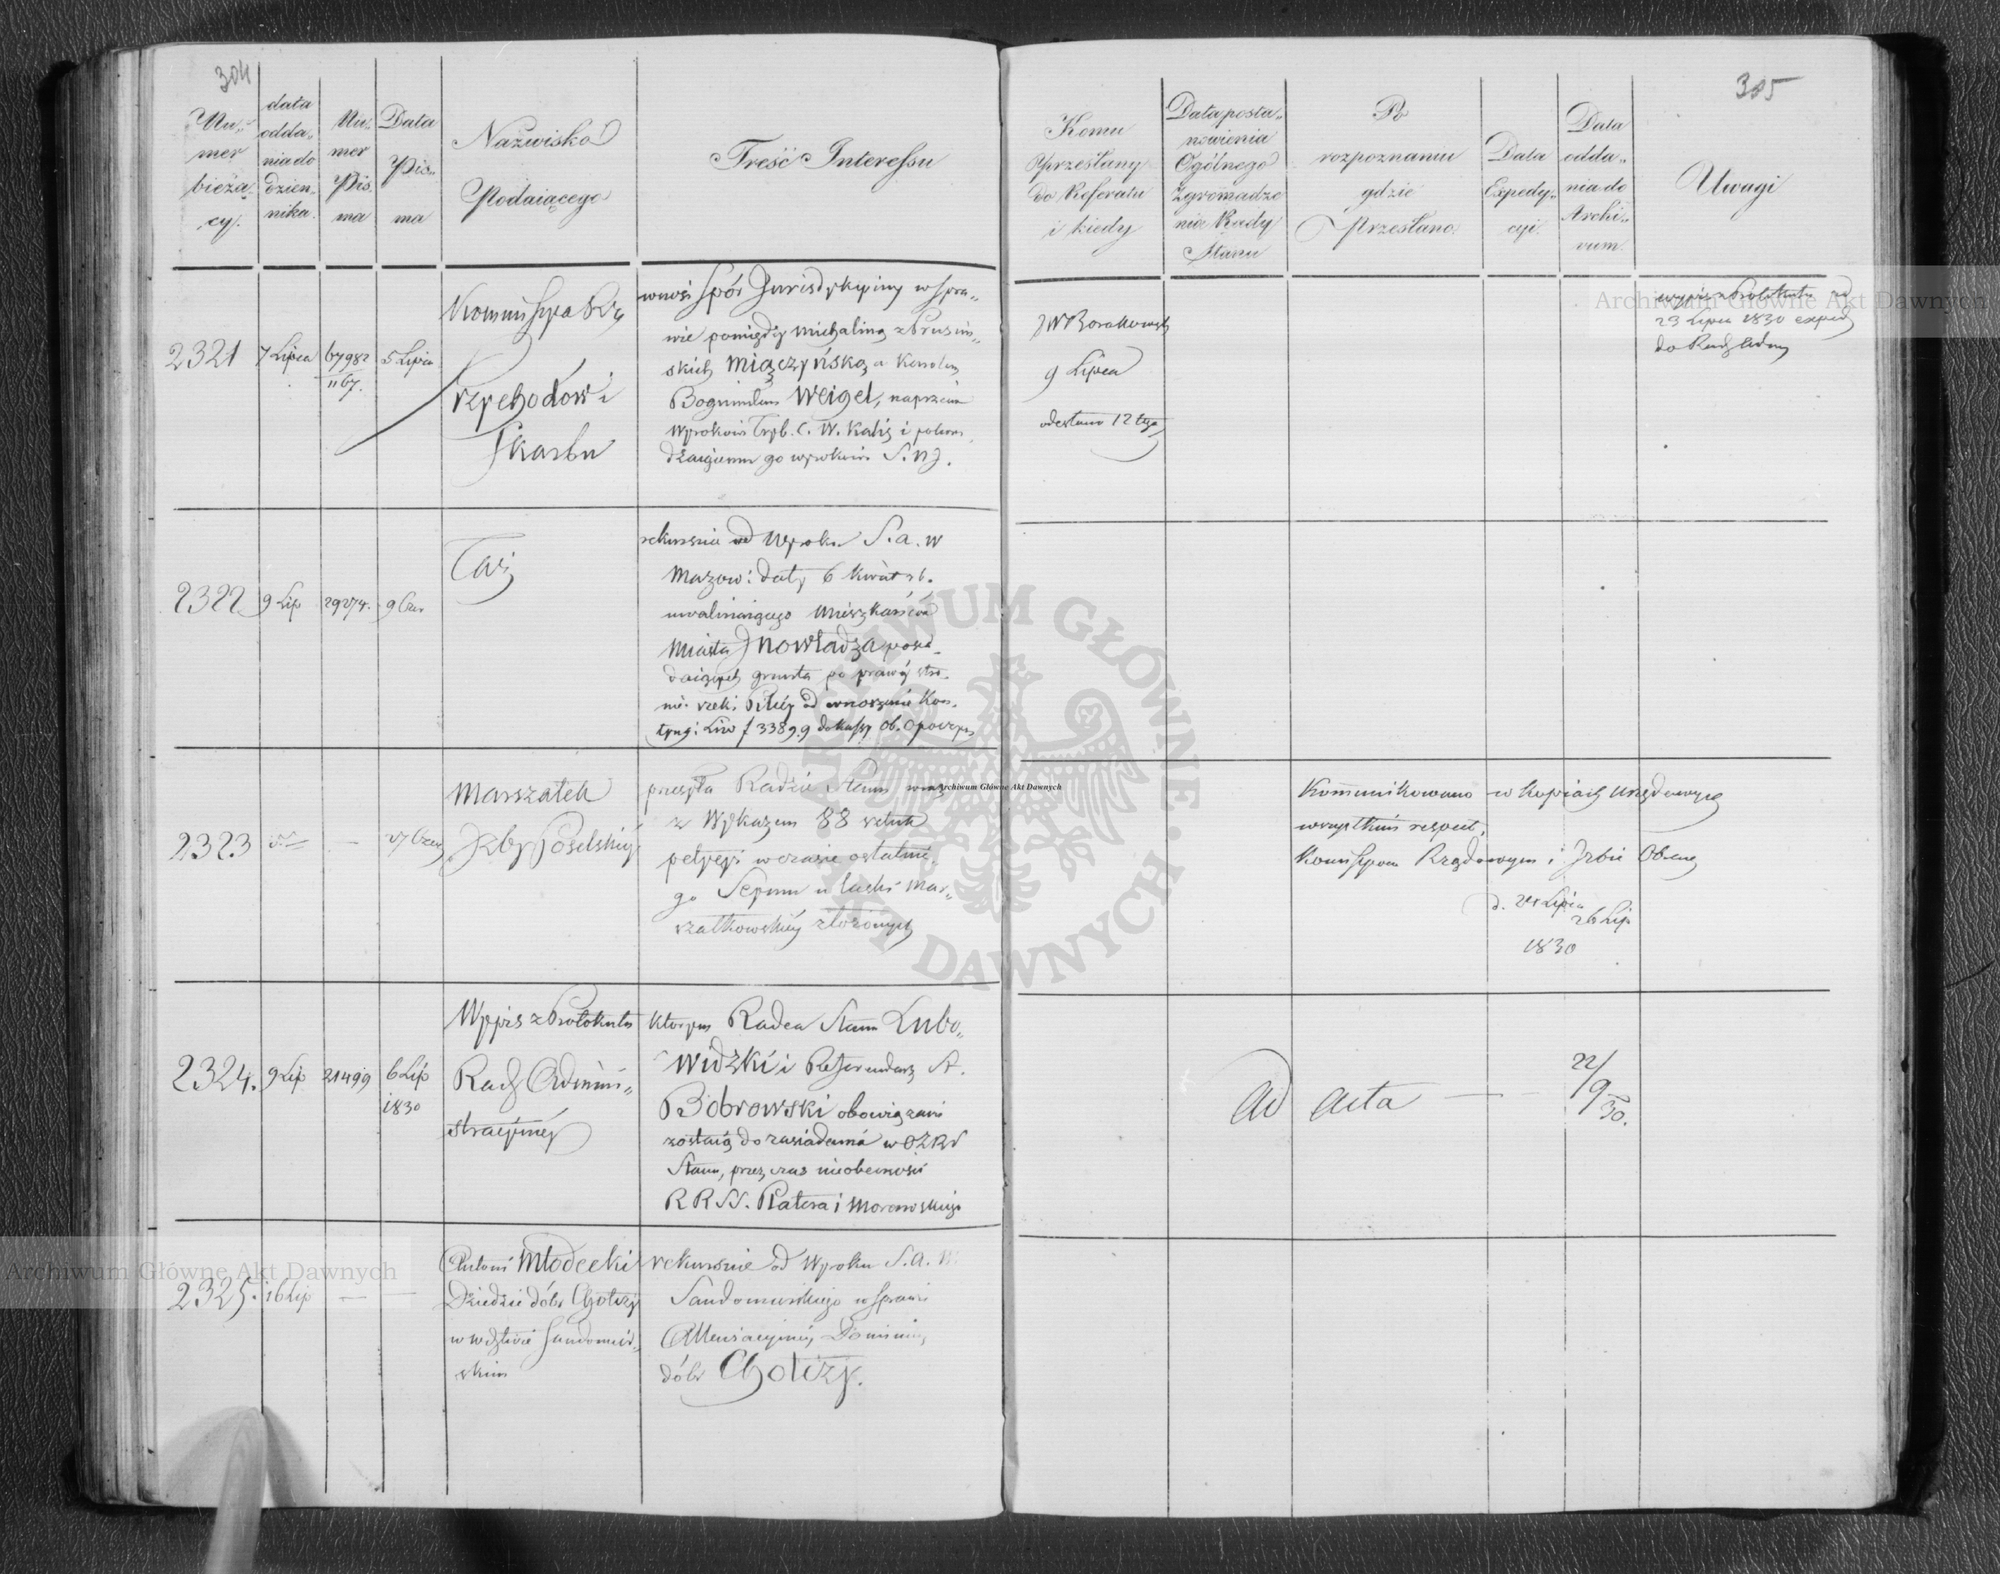 304
Nu-
mer
bieżą-
cy.
data
odda-
nia do
dzien-
nika.
Nu-
mer
Pis-
ma
Data
Pis-
ma
Nazwisko
Podaiącego
Treść Interessu
2321
7 Lipca
67982
1167.
5 Lipca
Kommissya Rz
Przychodów i
Skarbu
wnosi Spór Jurisdykcyiny w spra-
wie pomiędzy Michaliną z Prusim-
skich Miączyńską a Karolem
Bogumiłem Weigel, naprzeciw
Wyrokowi Tryb. C. W. Kalis i potwier
dzaiącemu go wyrokowi S. N J.
2322
9 Lip
29274.
9 Cze
Taż
rekursuie od Wyroku S. a. W
Mazow: daty 6 Kwiet rb.
uwalniaiącego Mieszkańców
Miasta Inowłodza posia-
daiących grunta po prawéj stro-
nie rzeki Pilicy od wnoszenia Kon-
tyng: Liw f 3389.9 do Kassy Ob. Opoczyń
2323
27 Czer
Marszałek
Izby Poselskiéy
przesyła Radzie Stanu wraz
z Wykazem 88 sztuk
petycyi w czasie ostatnie-
go Seymu u laski Mar-
szałkowskiéy złożonych
2324.
9 Lip
21499
6 Lip
1830
Wypis z Protokułu
Rady Admini-
stracyinéy
którym Radca Stanu Lubo-
widzki i Referendarz St.
Bobrowski obowiązani
zostaią do zasiadania w OZRy
Stanu, przez czas nieobecności
RRSS. Platera i Morawskiego
2325.
16 Lip
Antoni Młodecki
Dziedzic dóbr Chotczy
w Wdztwie Sandomir-
skim
rekursuie od Wyroku S. a. W
Sandomirskiego w sprawie
dóbr Chotczy.
305
Komu
Przesłany
do Referatu
i kiedy
Data posta-
nowienia
Ogólnego
Zgromadze
nia Rady
Stanu
Po
rozpoznaniu
gdzie
Przesłano
Data
Expedy-
cyi
Data
odda-
nia do
Archi-
vum
Uwagi
JW Borakowski
9 Lipca
odesłano 12 tego
wypis z Protokułu
23 Lipca 1830 exped
do Rady Admin
Kommunikowano w kopiach urzędowych
wszystkim respect.
Kommissyom Rządowym i Izbie Obrach
d. 24 Lipca
26 Lip
1830
ad acta
22/9 30.
Archiwum Główne Akt Dawnych
Archiwum Główne Akt Dawnych
Archiwum Główne Akt Dawnych
ARCHIWUM GŁÓWNE · AKT DAWNYCH ·